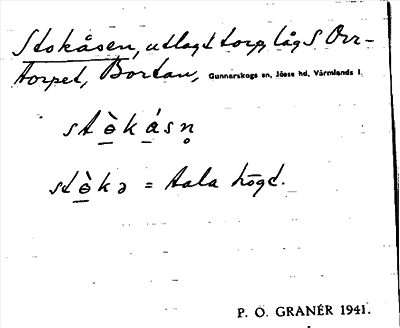 Stokåsen, utlagt torp, låg S Orr-
torpet, Bortan, Gunnarskogs sn, Jösse hd, Värmlands l.
stὸ̲ká̲sn̥
stὸ̲kə = tala högt.
P. O. GRANÉR 1941.